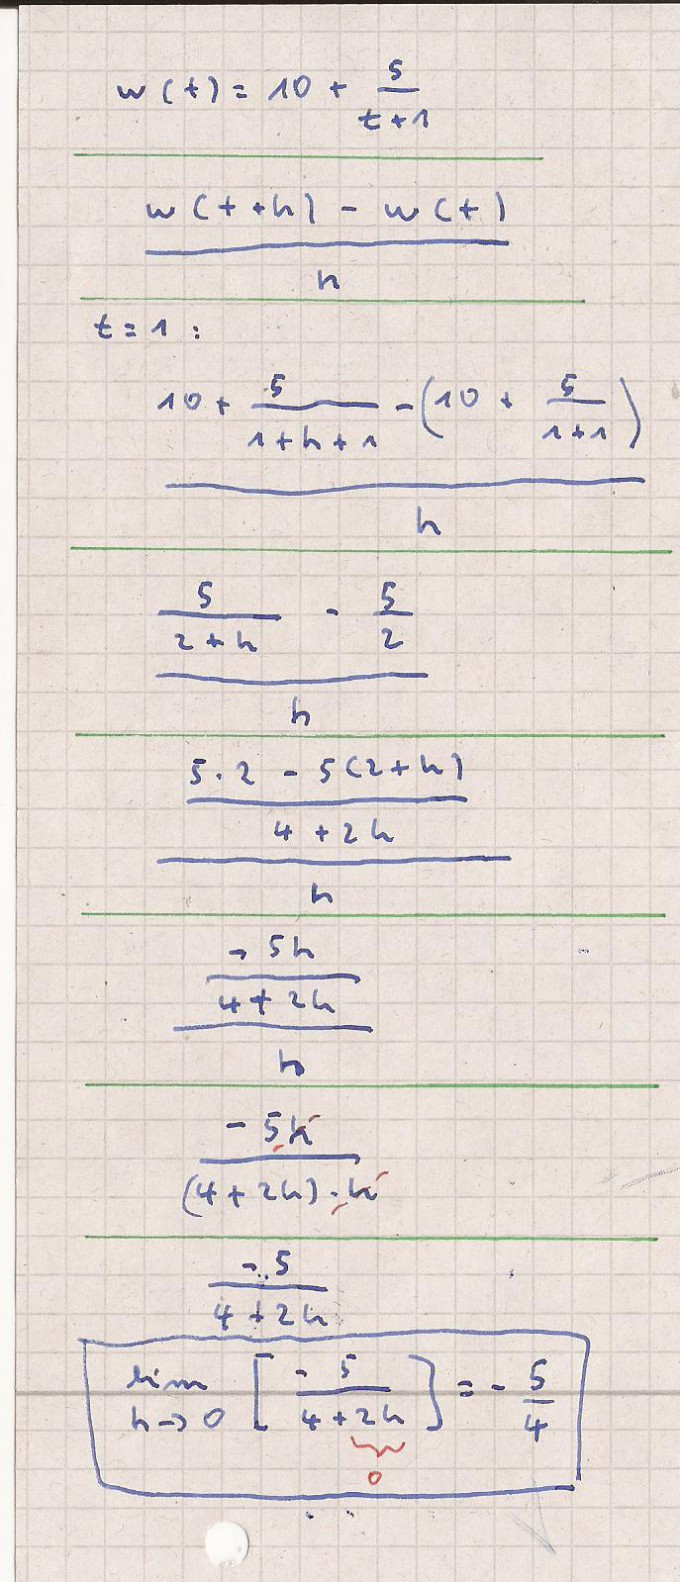 w(t) = 10 + 5/(t+1)
(w(t+h) - w(t))/h
t = 1 :
(10 + 5/(1+h+1) - (10 + 5/(1+1)))/h
(5/(2+h) - 5/2)/h
((5·2 - 5(2+h))/(4+2h))/h
(-5h/(4+2h))/h
-5h/((4+2h)·h)
-5/(4+2h)
lim h→0 [-5/(4+2h)] = -5/4
0